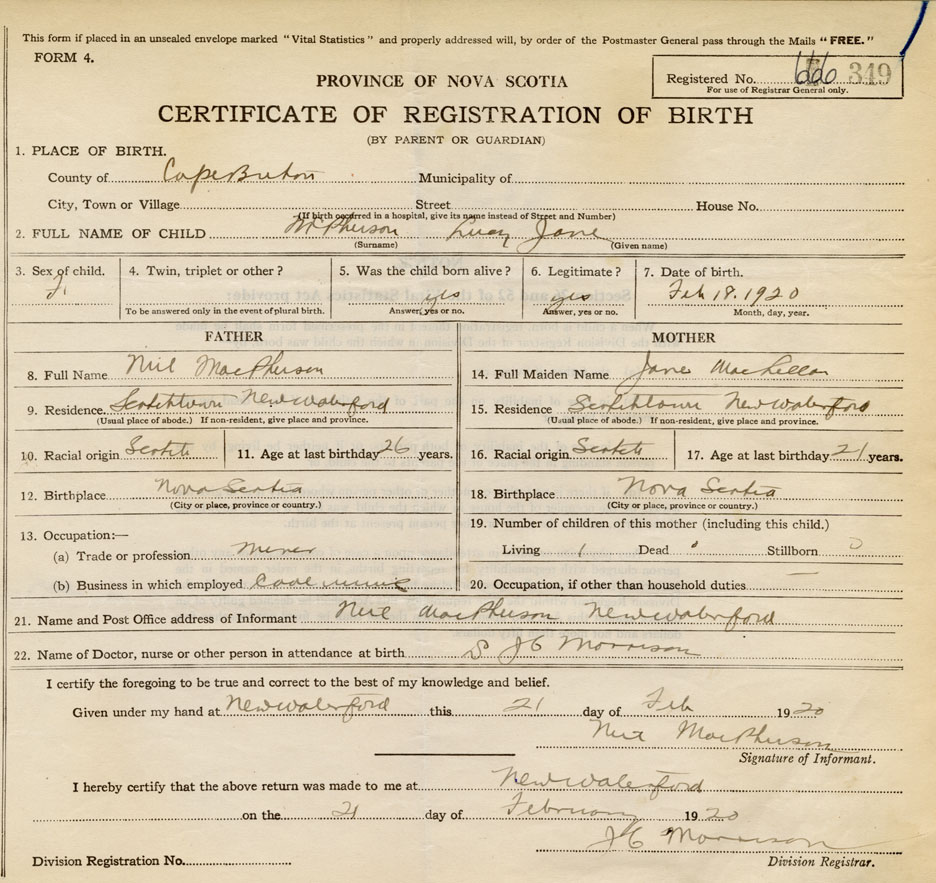 This form if placed in an unsealed envelope marked "Vital Statistics" and properly addressed will, by order of the Postmaster General pass through the Mails "FREE."
FORM 4.
Registered No. 349
For use of Registrar General only.
PROVINCE OF NOVA SCOTIA
CERTIFICATE OF REGISTRATION OF BIRTH
(BY PARENT OR GUARDIAN)
1. PLACE OF BIRTH.
County of Cape Breton Municipality of
City, Town or Village Street House No.
(If birth occurred in a hospital, give its name instead of Street and Number)
2. FULL NAME OF CHILD McPherson Lucy Jane
(Surname) (Given name)
3. Sex of child. 4. Twin, triplet or other? 5. Was the child born alive? 6. Legitimate? 7. Date of birth.
F. yes yes Feb 18. 1920
To be answered only in the event of plural birth. Answer, yes or no. Answer, yes or no. Month, day, year.
FATHER MOTHER
8. Full Name Neil MacPherson 14. Full Maiden Name Jane MacLellan
9. Residence. Scotchtown New Waterford 15. Residence Scotchtown New Waterford
(Usual place of abode.) If non-resident, give place and province. (Usual place of abode.) If non-resident, give place and province.
10. Racial origin Scotch 11. Age at last birthday 26 years. 16. Racial origin Scotch 17. Age at last birthday 21 years.
12. Birthplace Nova Scotia 18. Birthplace Nova Scotia
(City or place, province or country.) (City or place, province or country.)
13. Occupation:— 19. Number of children of this mother (including this child.)
(a) Trade or profession miner Living 1 Dead Stillborn 0
(b) Business in which employed Coal mine 20. Occupation, if other than household duties —
21. Name and Post Office address of Informant Neil MacPherson New Waterford
22. Name of Doctor, nurse or other person in attendance at birth J G Morrison
I certify the foregoing to be true and correct to the best of my knowledge and belief.
Given under my hand at New Waterford this 21 day of Feb 1920
Neil MacPherson
Signature of Informant.
I hereby certify that the above return was made to me at New Waterford
on the 21 day of February 1920
J G Morrison
Division Registration No. Division Registrar.